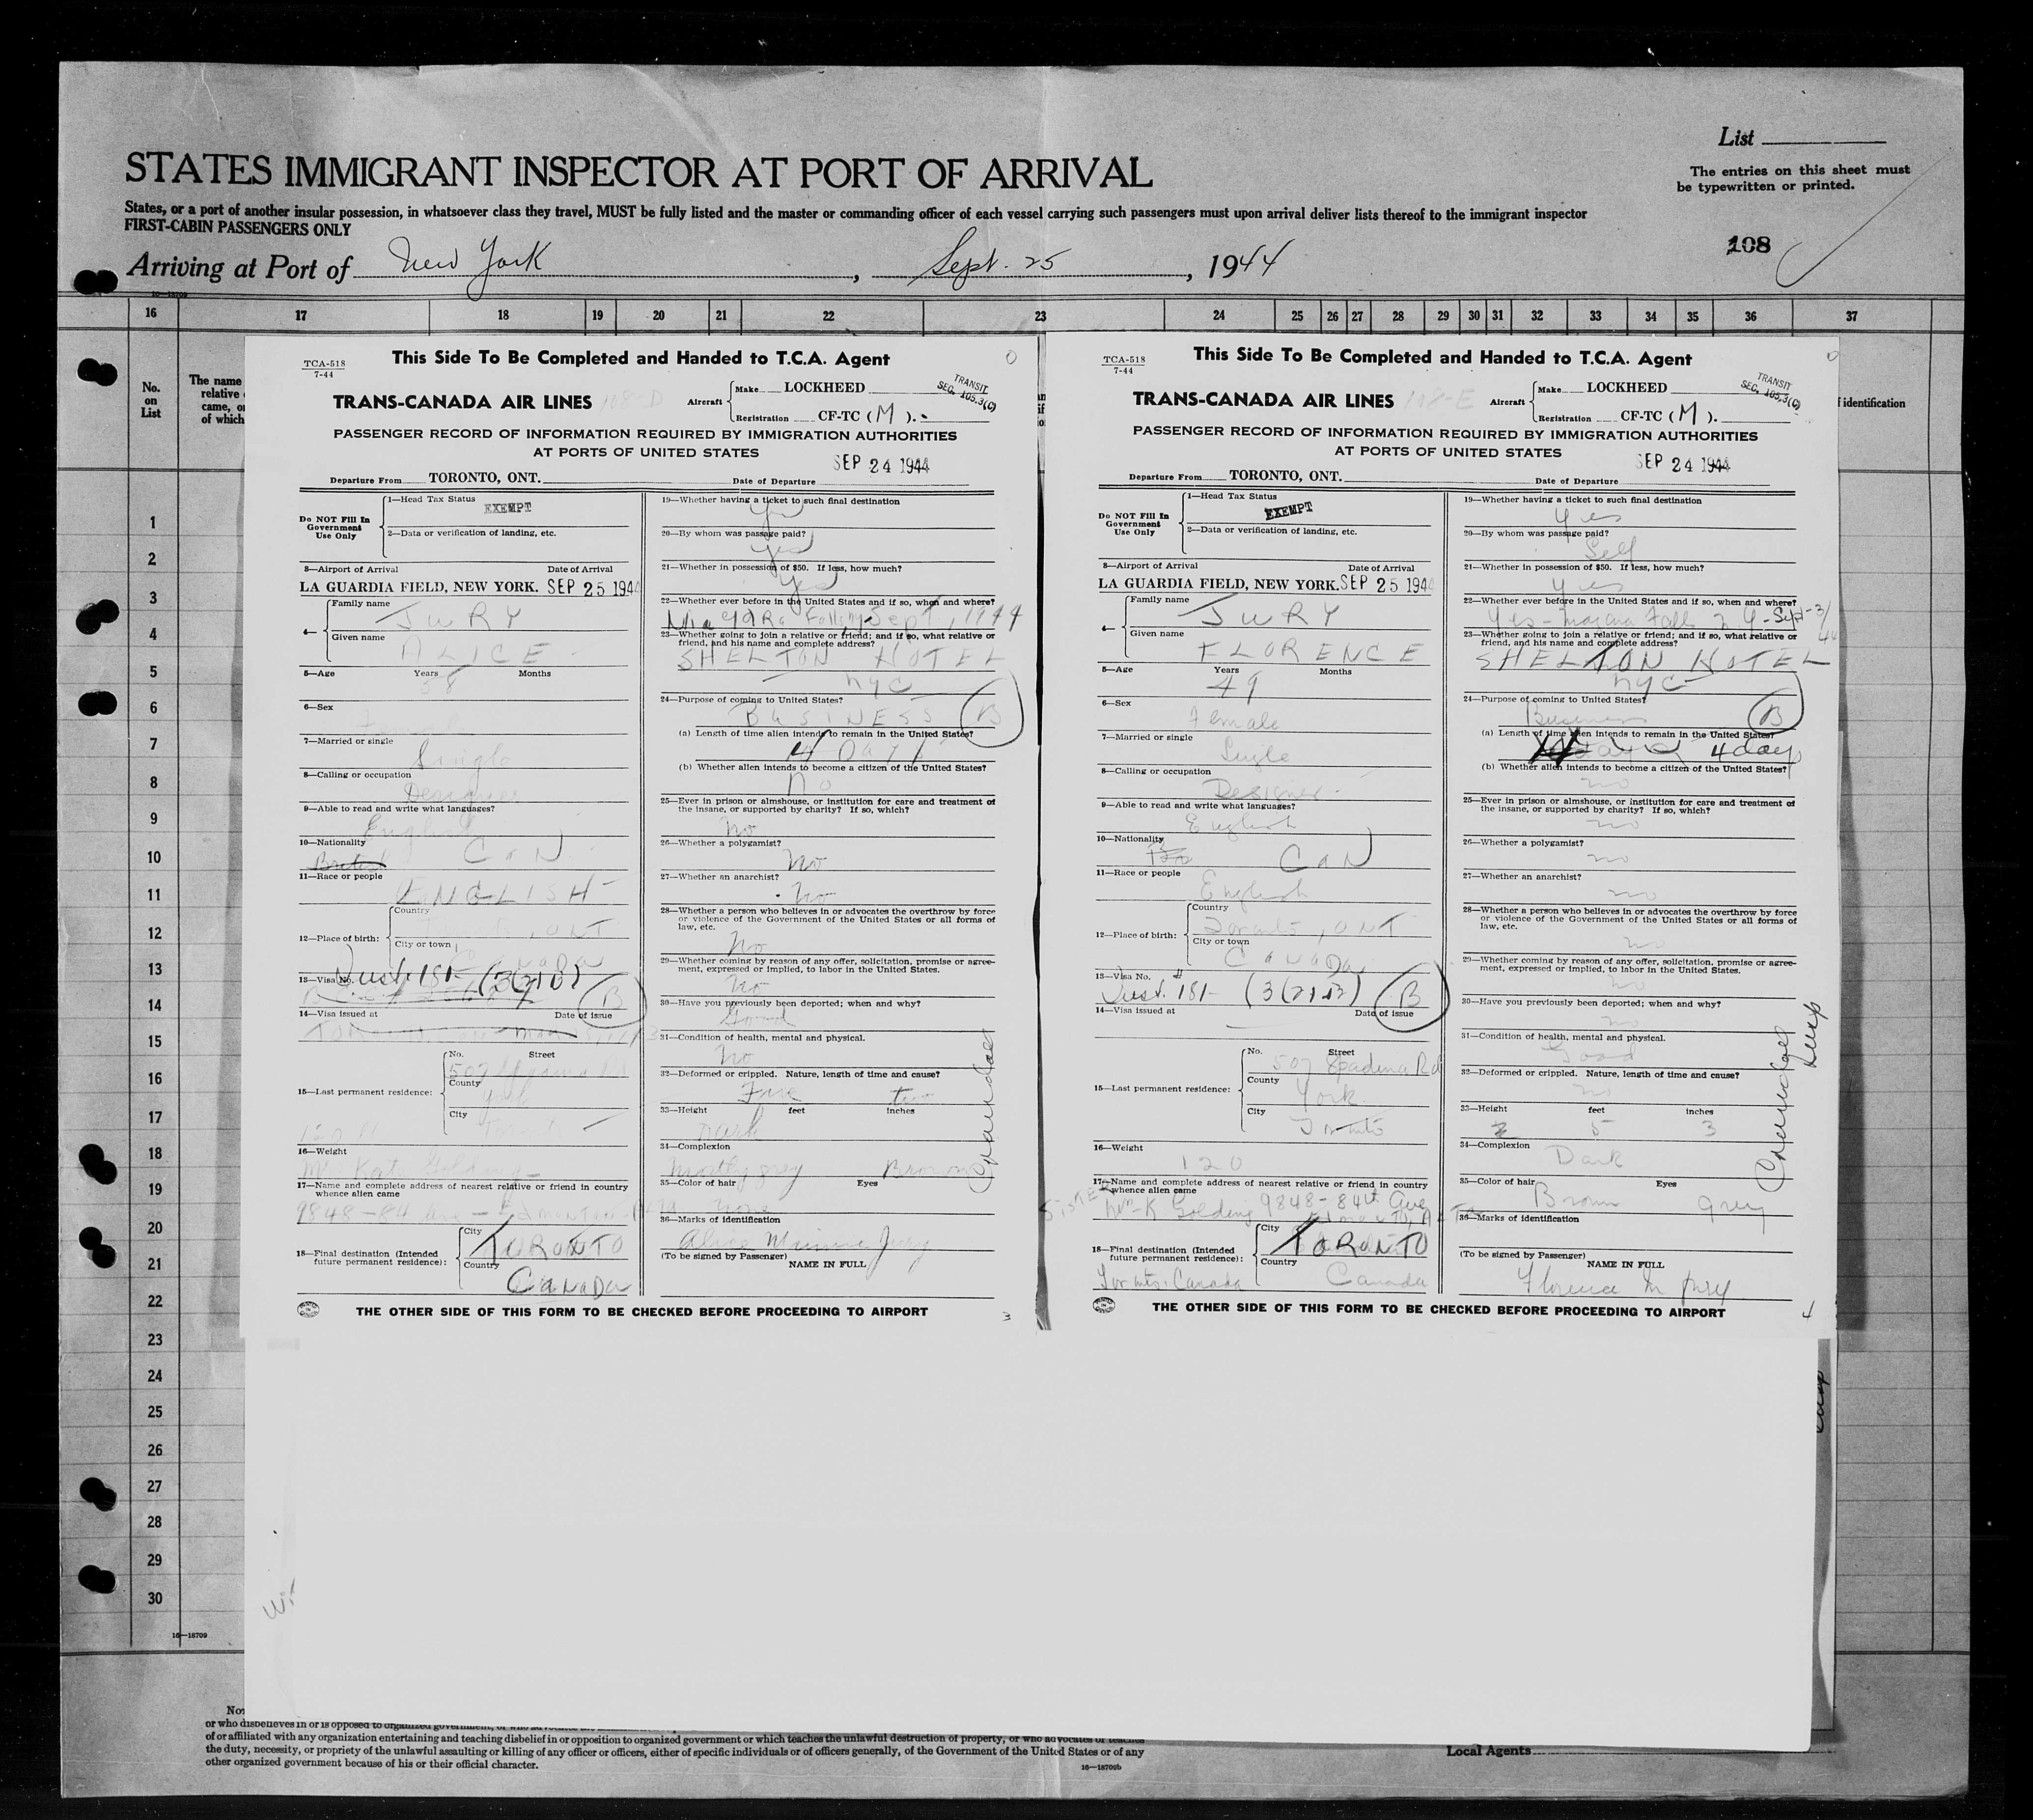 List
STATES IMMIGRANT INSPECTOR AT PORT OF ARRIVAL
The entries on this sheet must
be typewritten or printed.
States, or a port of another insular possession, in whatsoever class they travel, MUST be fully listed and the master or commanding officer of each vessel carrying such passengers must upon arrival deliver lists thereof to the immigrant inspector
FIRST-CABIN PASSENGERS ONLY
108
Arriving at Port of New York, Sept. 25, 1944
16-18709
16 17 18 19 20 21 22 23 24 25 26 27 28 29 30 31 32 33 34 35 36 37
No.
on
List
The name
relative
came, or
of which
identification
1
2
3
4
5
6
7
8
9
10
11
12
13
14
15
16
17
18
19
20
21
22
23
24
25
26
27
28
29
30
16-18709
TCA-518
7-44
This Side To Be Completed and Handed to T.C.A. Agent
TRANS-CANADA AIR LINES 108-D
Aircraft
Make LOCKHEED
Registration CF-TC (M).
TRANSIT
SEC. 105.3(C)
PASSENGER RECORD OF INFORMATION REQUIRED BY IMMIGRATION AUTHORITIES
AT PORTS OF UNITED STATES
SEP 24 1944
Departure From TORONTO, ONT. Date of Departure
Do NOT Fill In
Government
Use Only
1—Head Tax Status
EXEMPT
2—Data or verification of landing, etc.
3—Airport of Arrival Date of Arrival
LA GUARDIA FIELD, NEW YORK. SEP 25 1944
4—
Family name
JURY
Given name
ALICE
5—Age Years Months
38
6—Sex
7—Married or single
Single
8—Calling or occupation
Designer
9—Able to read and write what languages?
English
10—Nationality
British CAN
11—Race or people
ENGLISH
12—Place of birth:
Country
, ONT
City or town
Canada
13—Visa No.
Just. 181- (3(2)B) B
14—Visa issued at Date of issue
15—Last permanent residence:
No. Street
507 Spadina Rd
County
York
City
16—Weight
Kate Golding
17—Name and complete address of nearest relative or friend in country
whence alien came
9848-84 Ave - Edmonton
18—Final destination (Intended
future permanent residence):
City
TORONTO
Country
CANADA
19—Whether having a ticket to such final destination
Yes
20—By whom was passage paid?
Yes
21—Whether in possession of $50. If less, how much?
Yes
22—Whether ever before in the United States and if so, when and where?
Niagara Falls NY Sept, 1944
23—Whether going to join a relative or friend; and if so, what relative or
friend, and his name and complete address?
SHELTON HOTEL
NYC
24—Purpose of coming to United States?
BUSINESS B
(a) Length of time alien intends to remain in the United States?
4 Days
(b) Whether alien intends to become a citizen of the United States?
No
25—Ever in prison or almshouse, or institution for care and treatment of
the insane, or supported by charity? If so, which?
No
26—Whether a polygamist?
No
27—Whether an anarchist?
No
28—Whether a person who believes in or advocates the overthrow by force
or violence of the Government of the United States or all forms of
law, etc.
No
29—Whether coming by reason of any offer, solicitation, promise or agree-
ment, expressed or implied, to labor in the United States.
No
30—Have you previously been deported; when and why?
Good
31—Condition of health, mental and physical.
No
32—Deformed or crippled. Nature, length of time and cause?
Five two
33—Height feet inches
Dark
34—Complexion
Mostly grey Brown
35—Color of hair Eyes
None
36—Marks of identification
Alice Minnie Jury
(To be signed by Passenger)
NAME IN FULL
THE OTHER SIDE OF THIS FORM TO BE CHECKED BEFORE PROCEEDING TO AIRPORT
TCA-518
7-44
This Side To Be Completed and Handed to T.C.A. Agent
TRANS-CANADA AIR LINES 108-E
Aircraft
Make LOCKHEED
Registration CF-TC (M).
TRANSIT
SEC. 105.3(C)
PASSENGER RECORD OF INFORMATION REQUIRED BY IMMIGRATION AUTHORITIES
AT PORTS OF UNITED STATES
SEP 24 1944
Departure From TORONTO, ONT. Date of Departure
Do NOT Fill In
Government
Use Only
1—Head Tax Status
EXEMPT
2—Data or verification of landing, etc.
3—Airport of Arrival Date of Arrival
LA GUARDIA FIELD, NEW YORK. SEP 25 1944
4—
Family name
JURY
Given name
FLORENCE
5—Age Years Months
49
6—Sex
Female
7—Married or single
Single
8—Calling or occupation
Designer
9—Able to read and write what languages?
English
10—Nationality
CAN
11—Race or people
English
12—Place of birth:
Country
Toronto, ONT
City or town
CANADA
13—Visa No.
Just. # 181- (3(2)B) B
14—Visa issued at Date of issue
15—Last permanent residence:
No. Street
507 Spadina Rd
County
York
City
Toronto
16—Weight
120
17—Name and complete address of nearest relative or friend in country
whence alien came
SISTER Mrs K Golding 9848-84th Ave
18—Final destination (Intended
future permanent residence):
Toronto. Canada
City
TORONTO
Country
Canada
19—Whether having a ticket to such final destination
Yes
20—By whom was passage paid?
Self
21—Whether in possession of $50. If less, how much?
Yes
22—Whether ever before in the United States and if so, when and where?
Yes - Niagara Falls N.Y. - Sept 3/44
23—Whether going to join a relative or friend; and if so, what relative or
friend, and his name and complete address?
SHELTON HOTEL
NYC
24—Purpose of coming to United States?
Business B
(a) Length of time alien intends to remain in the United States?
4 days
(b) Whether alien intends to become a citizen of the United States?
no
25—Ever in prison or almshouse, or institution for care and treatment of
the insane, or supported by charity? If so, which?
no
26—Whether a polygamist?
no
27—Whether an anarchist?
no
28—Whether a person who believes in or advocates the overthrow by force
or violence of the Government of the United States or all forms of
law, etc.
no
29—Whether coming by reason of any offer, solicitation, promise or agree-
ment, expressed or implied, to labor in the United States.
no
30—Have you previously been deported; when and why?
no
31—Condition of health, mental and physical.
Good
32—Deformed or crippled. Nature, length of time and cause?
no
33—Height feet inches
5 3
34—Complexion
Dark
35—Color of hair Eyes
Brown grey
36—Marks of identification
(To be signed by Passenger)
NAME IN FULL
Florence M Jury
THE OTHER SIDE OF THIS FORM TO BE CHECKED BEFORE PROCEEDING TO AIRPORT
or who disbelieves in or is opposed to organized government,
of or affiliated with any organization entertaining and teaching disbelief in or opposition to organized government or which teaches the unlawful destruction of property, or who advocates or teaches
the duty, necessity, or propriety of the unlawful assaulting or killing of any officer or officers, either of specific individuals or of officers generally, of the Government of the United States or of any
other organized government because of his or their official character.
16-18709b
Local Agents